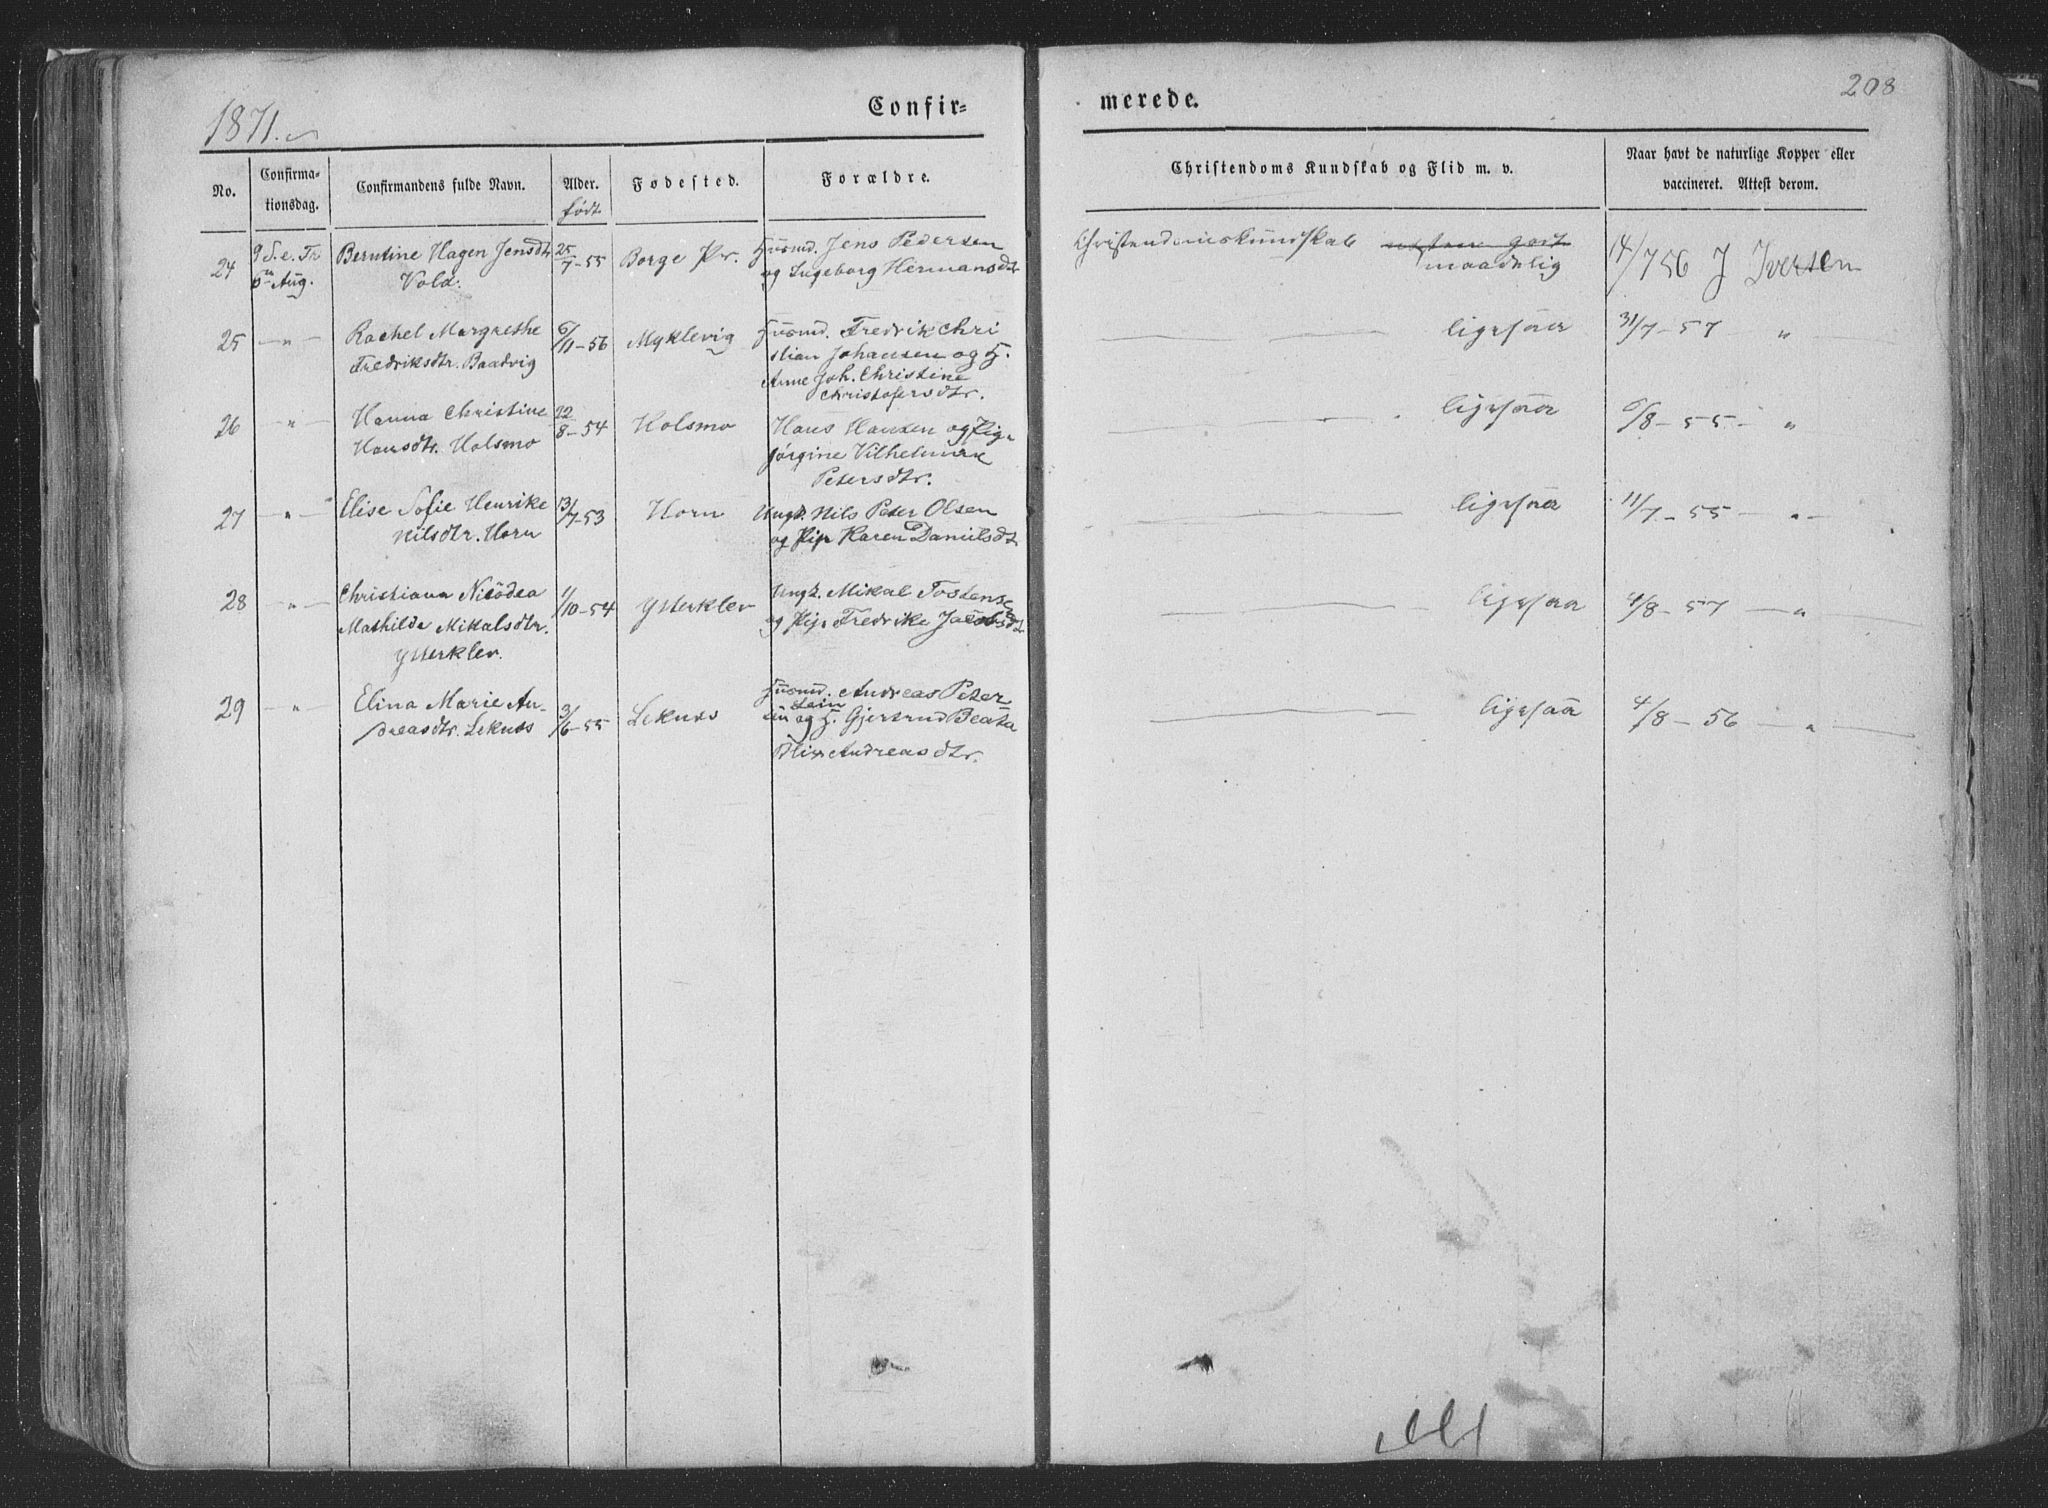 1871.
Confir=
merede.
208
No.
Confirma-
tionsdag.
Confirmandens fulde Navn.
Alder.
født
Fødested.
Forældre.
Christendoms Kundskab og Flid m. v.
Naar havt de naturlige Kopper eller
vaccineret. Attest derom.
24
9 S. e. Tr.
6te Aug.
Berntine Hagen Jensdtr
Vold.
25/7-55
Borge Pr.
Husmd. Jens Pedersen
og Ingeborg Hermansdtr
Christendomskundskab næsten godt
maadelig
14/7 56 J Iversen
25
— " —
Rachel Margrethe
Fredriksdtr. Baadvig
6/11-56
Myklevig
Husmd. Fredrik Chri
stian Johansen og H.
Anne Joh. Christine
Christofersdtr.
ligesaa
31/7-57 "
26
— " —
Hanna Christine
Hansdtr. Holsmo
22/8-54
Holsmo
Hans Hansen og Pig.
Jørgine Vilhelmine
Petersdtr.
ligesaa
6/8-55- "
27
— " —
Elise Sofie Henrike
Nilsdtr. Horn
13/7-53
Horn
Ungk. Nils Peter Olsen
og Pige Karen Danielsdtr
ligesaa
11/7-55 — " —
28
— " —
Christiana Nicodea
Mathilde Mikalsdtr.
Ysterklev.
1/10-54
Ysterklev
Ungk. Mikal Tostensen
og Pige Fredrike Jacobsdtr
ligesaa
4/8-57 — " —
29
— " —
Elina Marie An-
dreasdtr. Leknes
3/6-55
Leknes
Husmd. Andreas Peter
og H. Gjertrud Beata
Blix Andreasdtr.
ligesaa
4/8-56 — " —